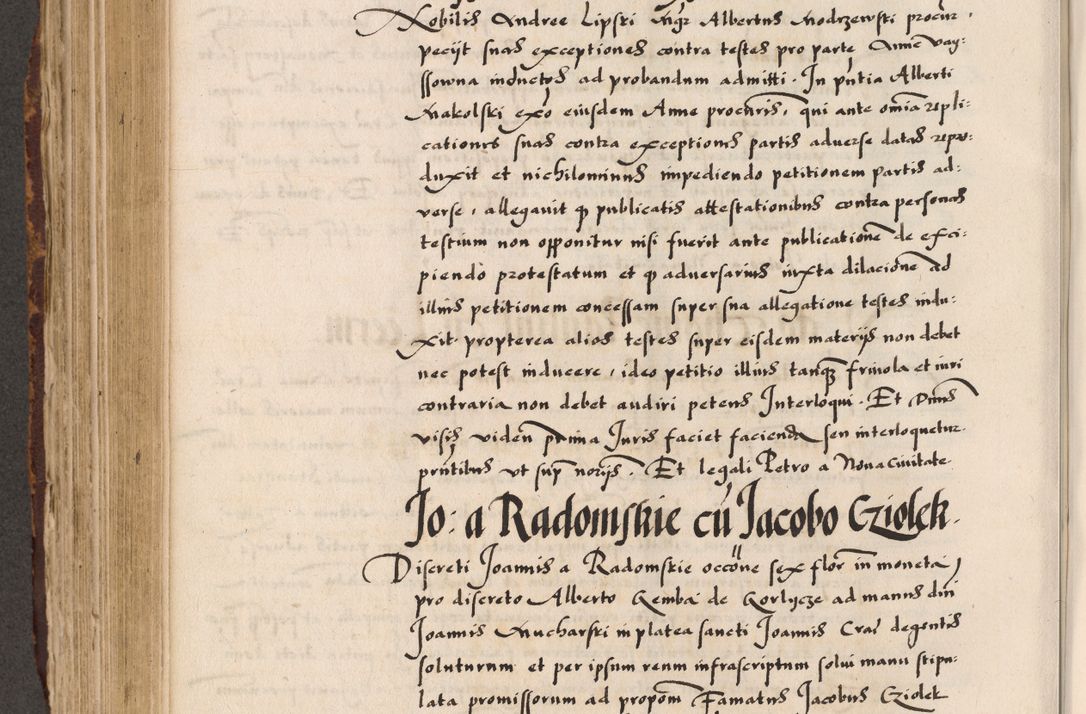 Nobilis Andree Lipski Mgr Albertus Modrzewski procur ·
pecijt suas exceptiones contra testes pro parte Anne Vay:
ssowna inductos ad probandum admitti · In pntia Alberti
Makolski exo eiusdem Anne procuris, qui ante omia repli:
cationes suas contra exceptiones partis adverse datas repro:
duxit et nichilominus impediendo petitionem partis ad:
verse, allegavit q publicatis attestationibus contra personas
testium non opponitur nisi fuerit ante publicatione de exci:
piendo protestatum et q adversarius iuxta dilacione ad
illius petitionem concessam super sua allegatione testes indu:
xit · propterea alios testes super eisdem materijs non debet
nec potest inducere, ideo petitio illius tanq frivola et iuri
contraria non debet audiri petens Interloqui · Et Dnus
visis viden Juris faciet facienda seu interloquetur
pntibus ut sup norijs · Et legali Petro a Nova Civitate
Jo: a Radomskie cu Jacobo Cziolek ·
Discreti Joannis a Radomskie occone sex flor in moneta
pro discreto Alberto Gemba de Gorlycze ad manus dni
Joannis Mucharski in platea sancti Joannis Cra degentis
soluturum et per ipsum reum infrascriptum solui manu stipu:
lata promissorum ad propom Famatus Jacobus Cziolek